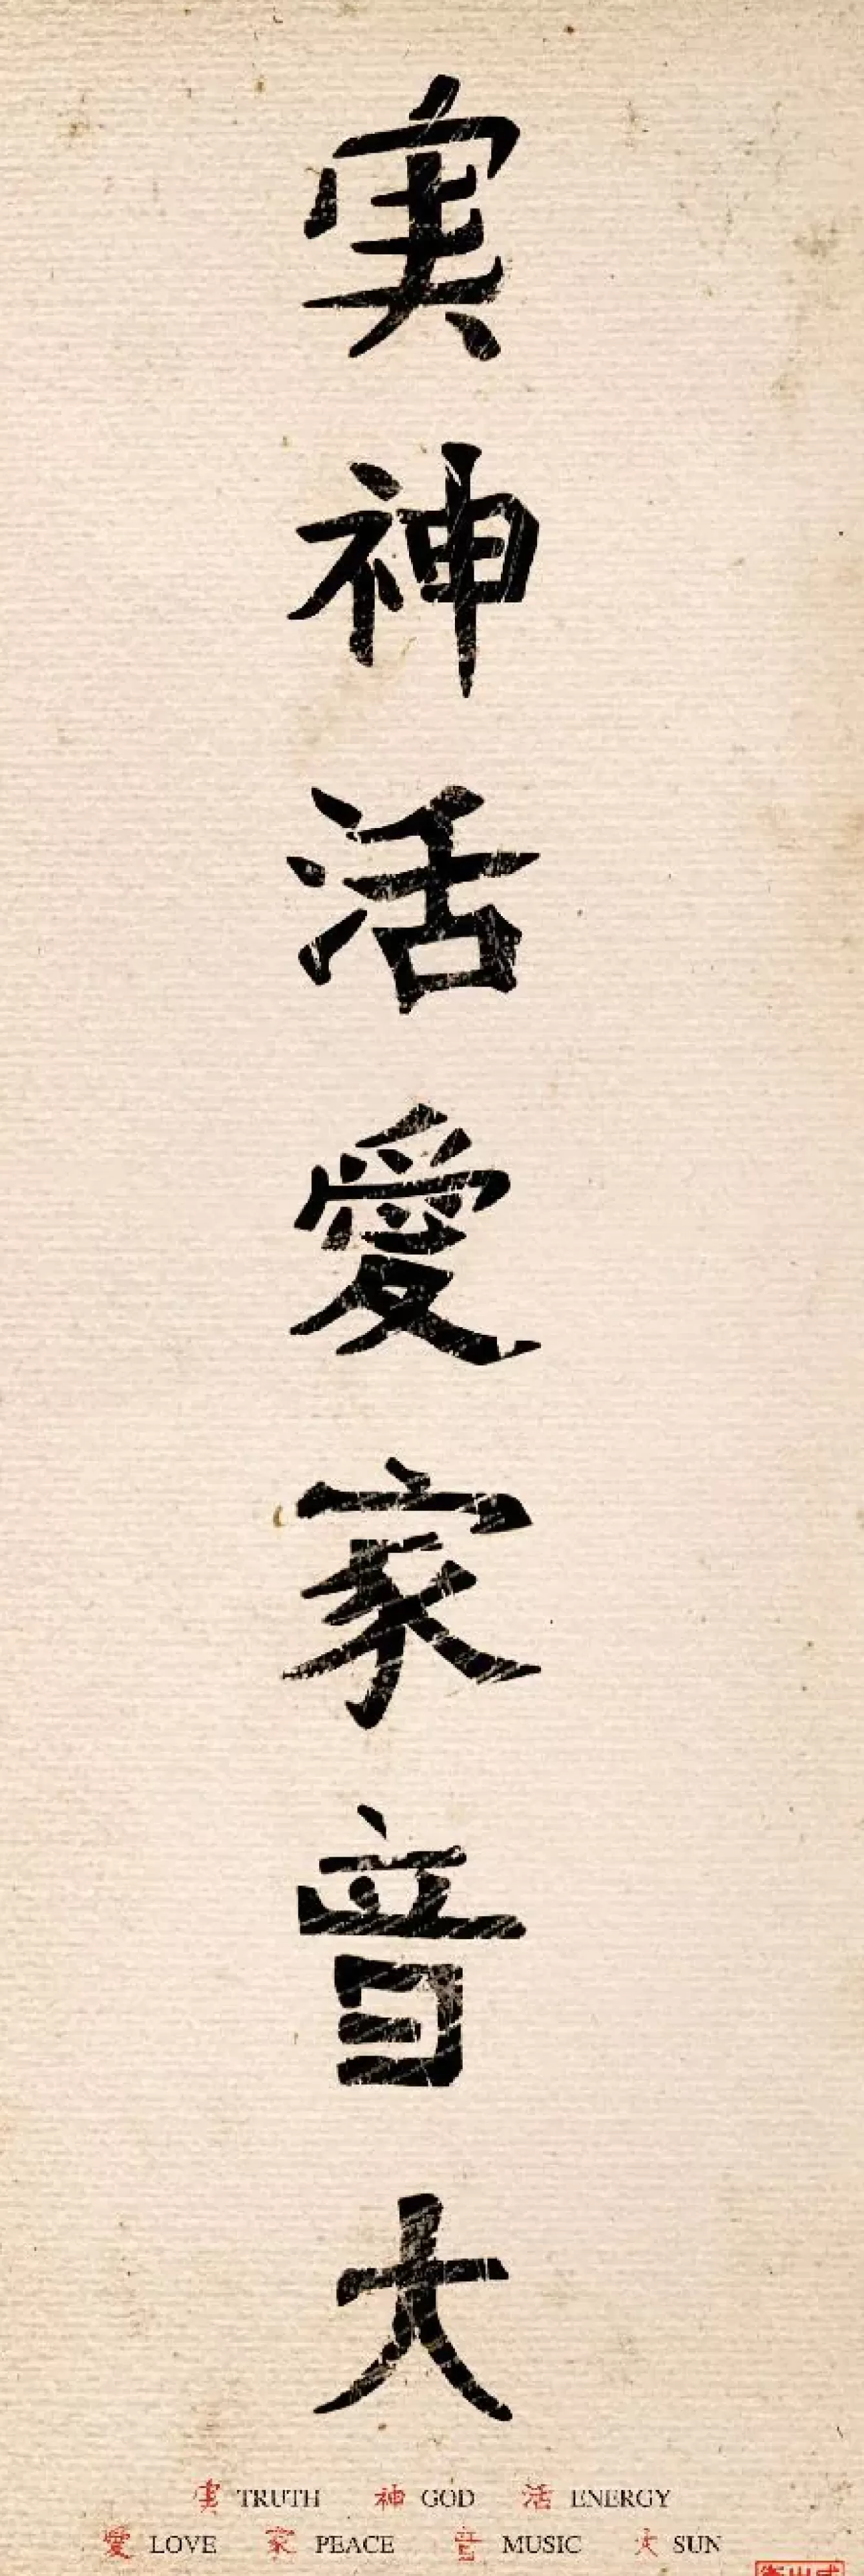 実
神
活
愛
家
音
大
実 TRUTH 神 GOD 活 ENERGY
愛 LOVE 家 PEACE 音 MUSIC 大 SUN